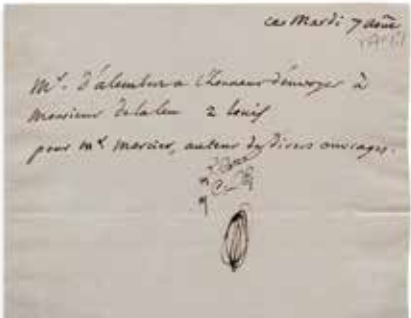 ce Mardi 7 août
Mr. d'alembert a l'honneur d'envoyer à
Monsieur delaleu 2 louis
pour Mr. Mercier, auteur de divers ouvrages.